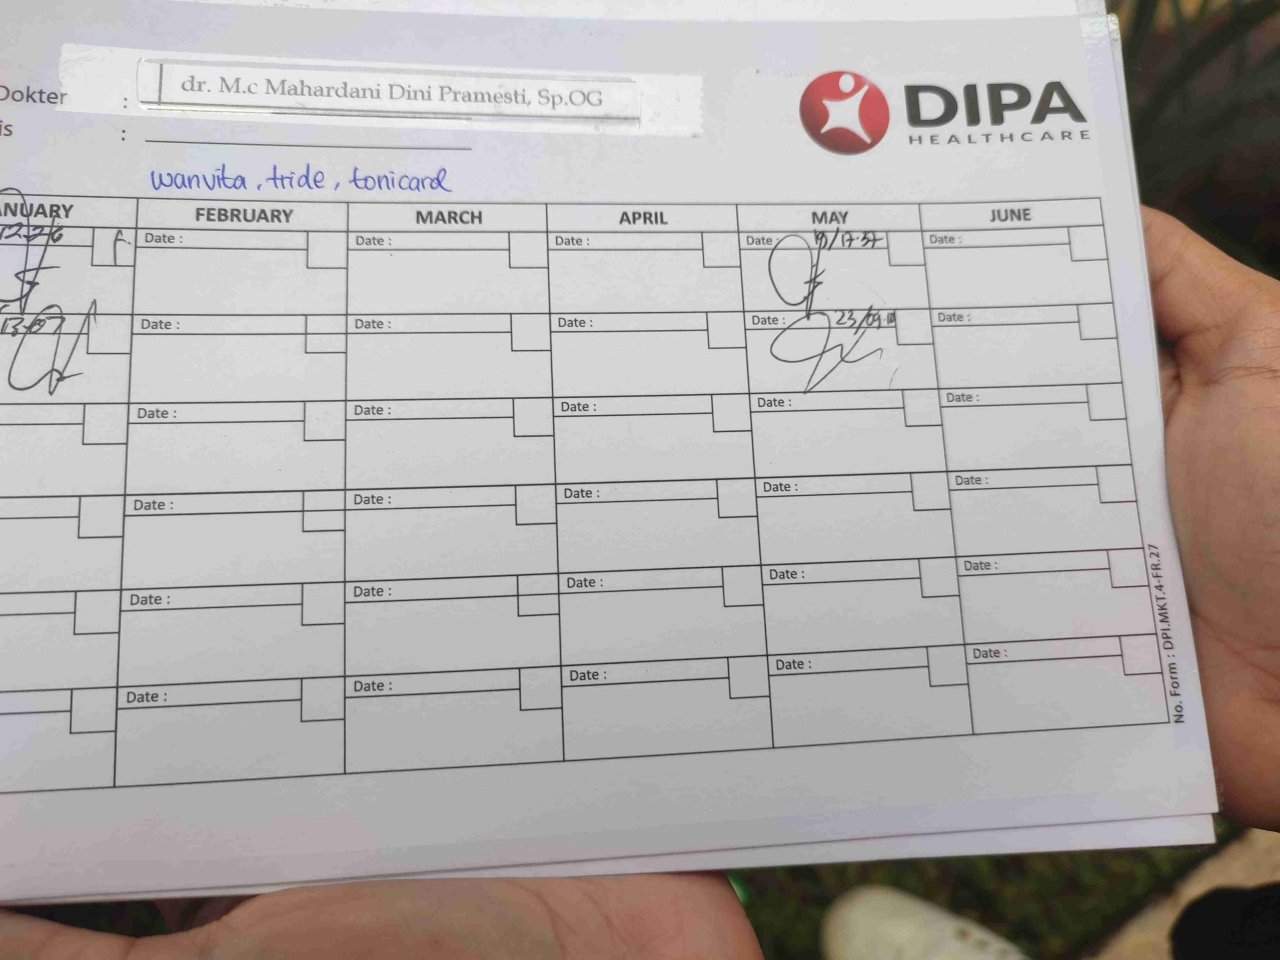 Dokter : dr. M.c Mahardani Dini Pramesti, Sp.OG
is :
DIPA
HEALTHCARE
wanvita, tride, tonicard
ANUARY FEBRUARY MARCH APRIL MAY JUNE
Date : Date : Date : Date : 19/17.37 Date :
Date : Date : Date : Date : 23/09 Date :
Date : Date : Date : Date : Date :
Date : Date : Date : Date : Date :
Date : Date : Date : Date : Date :
Date : Date : Date : Date : Date :
No. Form : DPI.MKT.4-FR.27